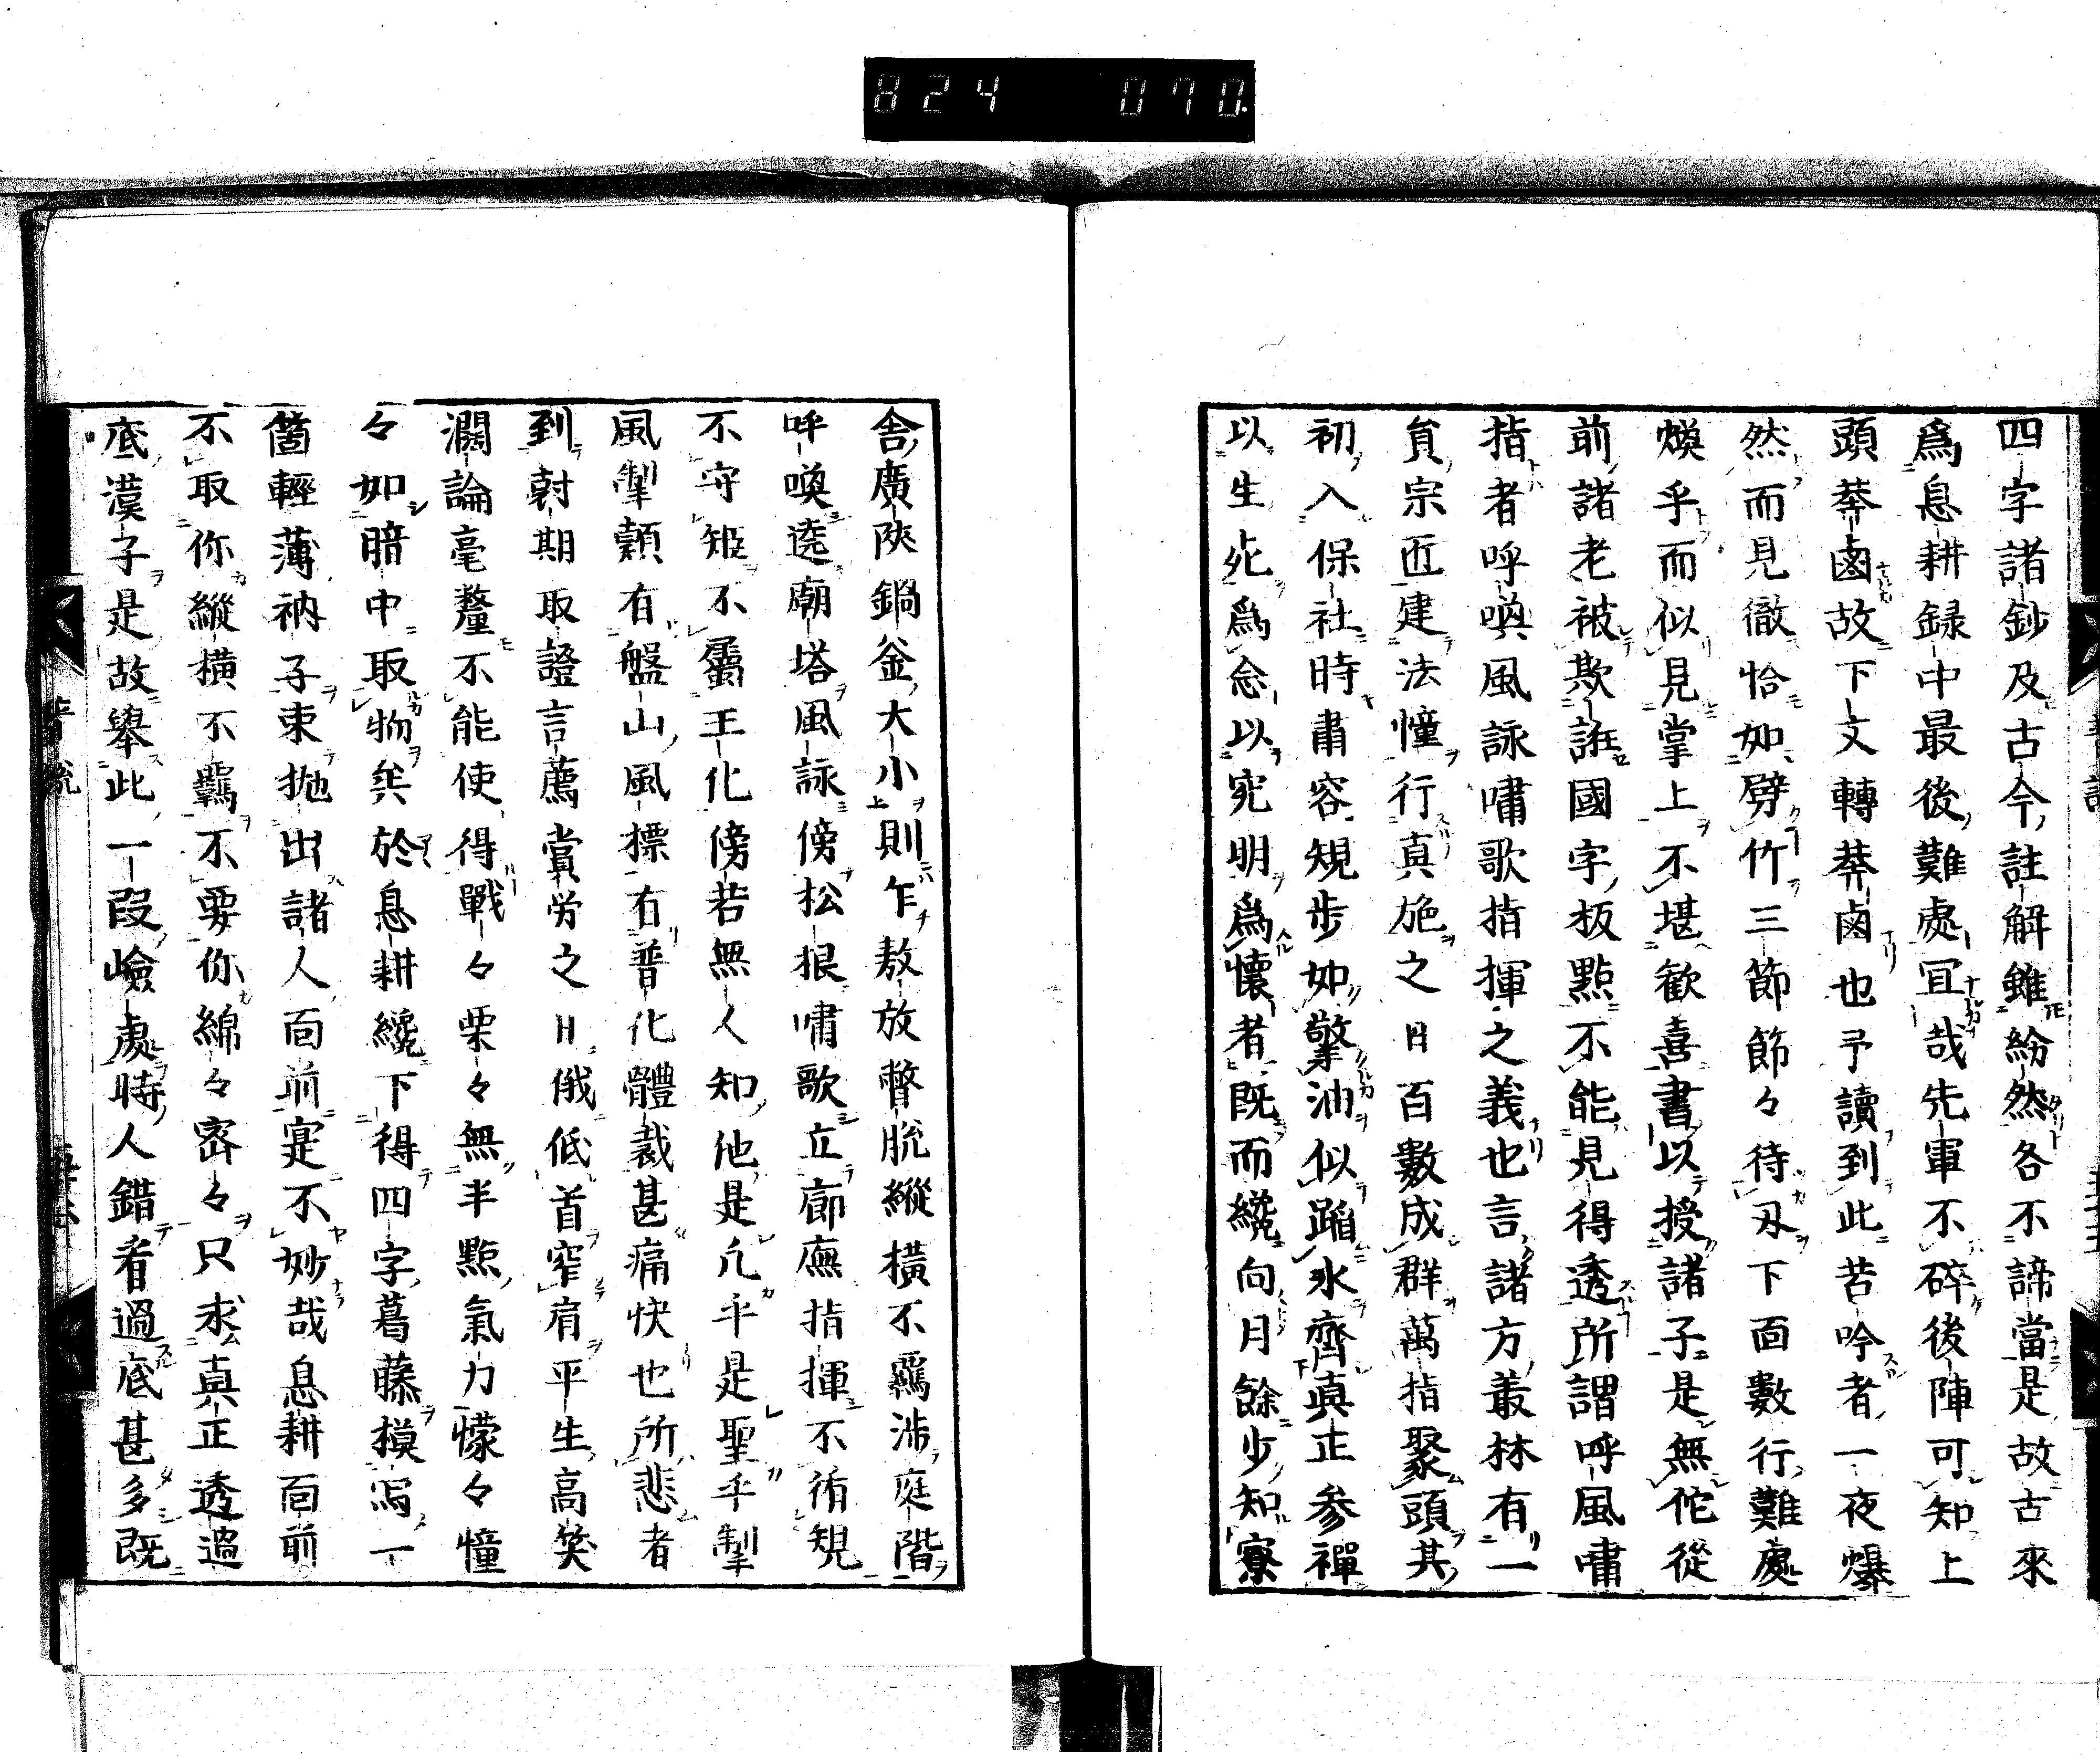 824 070
四字諸鈔及古今註解雖紛然各不諦當是故古來
爲息耕録中最後難處冝哉先軍不碎後陣可知上
頭莽鹵故下文轉莽鹵也予讀到此苦吟者一夜爆
然而見徹恰如劈竹三節節々待刄下面數行難處
煥乎而似見掌上不堪歡喜書以授諸子是無佗從
前諸老被欺誑國字扳點不能見得透所謂呼風嘯
指者呼喚風詠嘯歌指揮之義也言諸方叢林有一
員宗匠建法幢行真施之日百數成群萬指聚頭其
初入保社時肅容規步如擎油似蹈氷齊真正參禪
以生死爲念以究明爲懐者既而纔向月餘少知寮
舎廣陜鍋釡大小則乍敖放瞥脱縱横不羈沸庭階
呼喚遶廟塔風詠傍松根嘯歌立廊廡指揮不循規
不守矩不屬王化傍若無人知他是凡乎是聖乎掣
風掣顛有盤山風標有普化體裁甚痛快也所悲者
到尅期取證言薦賞労之日俄低首窄肩平生高笑
濶論毫釐不能使得戰々栗々無半點氣力懞々憧
々如暗中取物矣於息耕纔下得四字葛藤模冩一
箇輕薄衲子束抛出諸人面前寔不妙哉息耕面前
不取你縱横不羈不要你綿々密々只求真正透過
底漢子是故舉此一段嶮處時人錯看過底甚多既